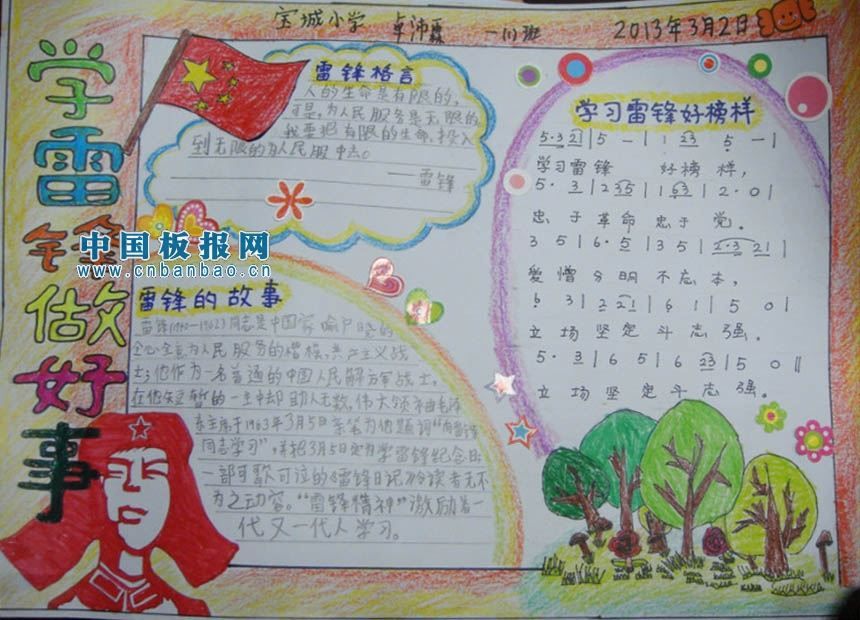 宝城小学 卓沛霖 一(1)班 2013年3月2日
学雷锋做好事
雷锋格言
人的生命是有限的,
可是,为人民服务是无限的
我要把有限的生命,投入
到无限的为人民服中去。
——雷锋
中国板报网
www.cnbanbao.cn
雷锋的故事
雷锋(1940-1962)同志是中国家喻户晓的
全心全意为人民服务的楷模,共产主义战
士;他作为一名普通的中国人民解放军战士,
在他短暂的一生中却助人无数。伟大领袖毛泽
东主席于1963年3月5日亲笔为他题词“向雷锋
同志学习”,并把3月5日定为学雷锋纪念日;
一部可歌可泣的《雷锋日记》令读者无不
为之动容。“雷锋精神”激励着一
代又一代人学习。
学习雷锋好榜样
5·3 21|5 —|1 23 5 —|
学习雷锋 好榜样,
5· 3|2 35|1 63|2·0|
忠于革命忠于党。
3 5|6·5|3 5|2·3 21|
爱憎分明不忘本,
6 3|2 21|6 1|5 0|
立场坚定斗志强。
5· 3|6 5|6 23|5 0‖
立场坚定斗志强。